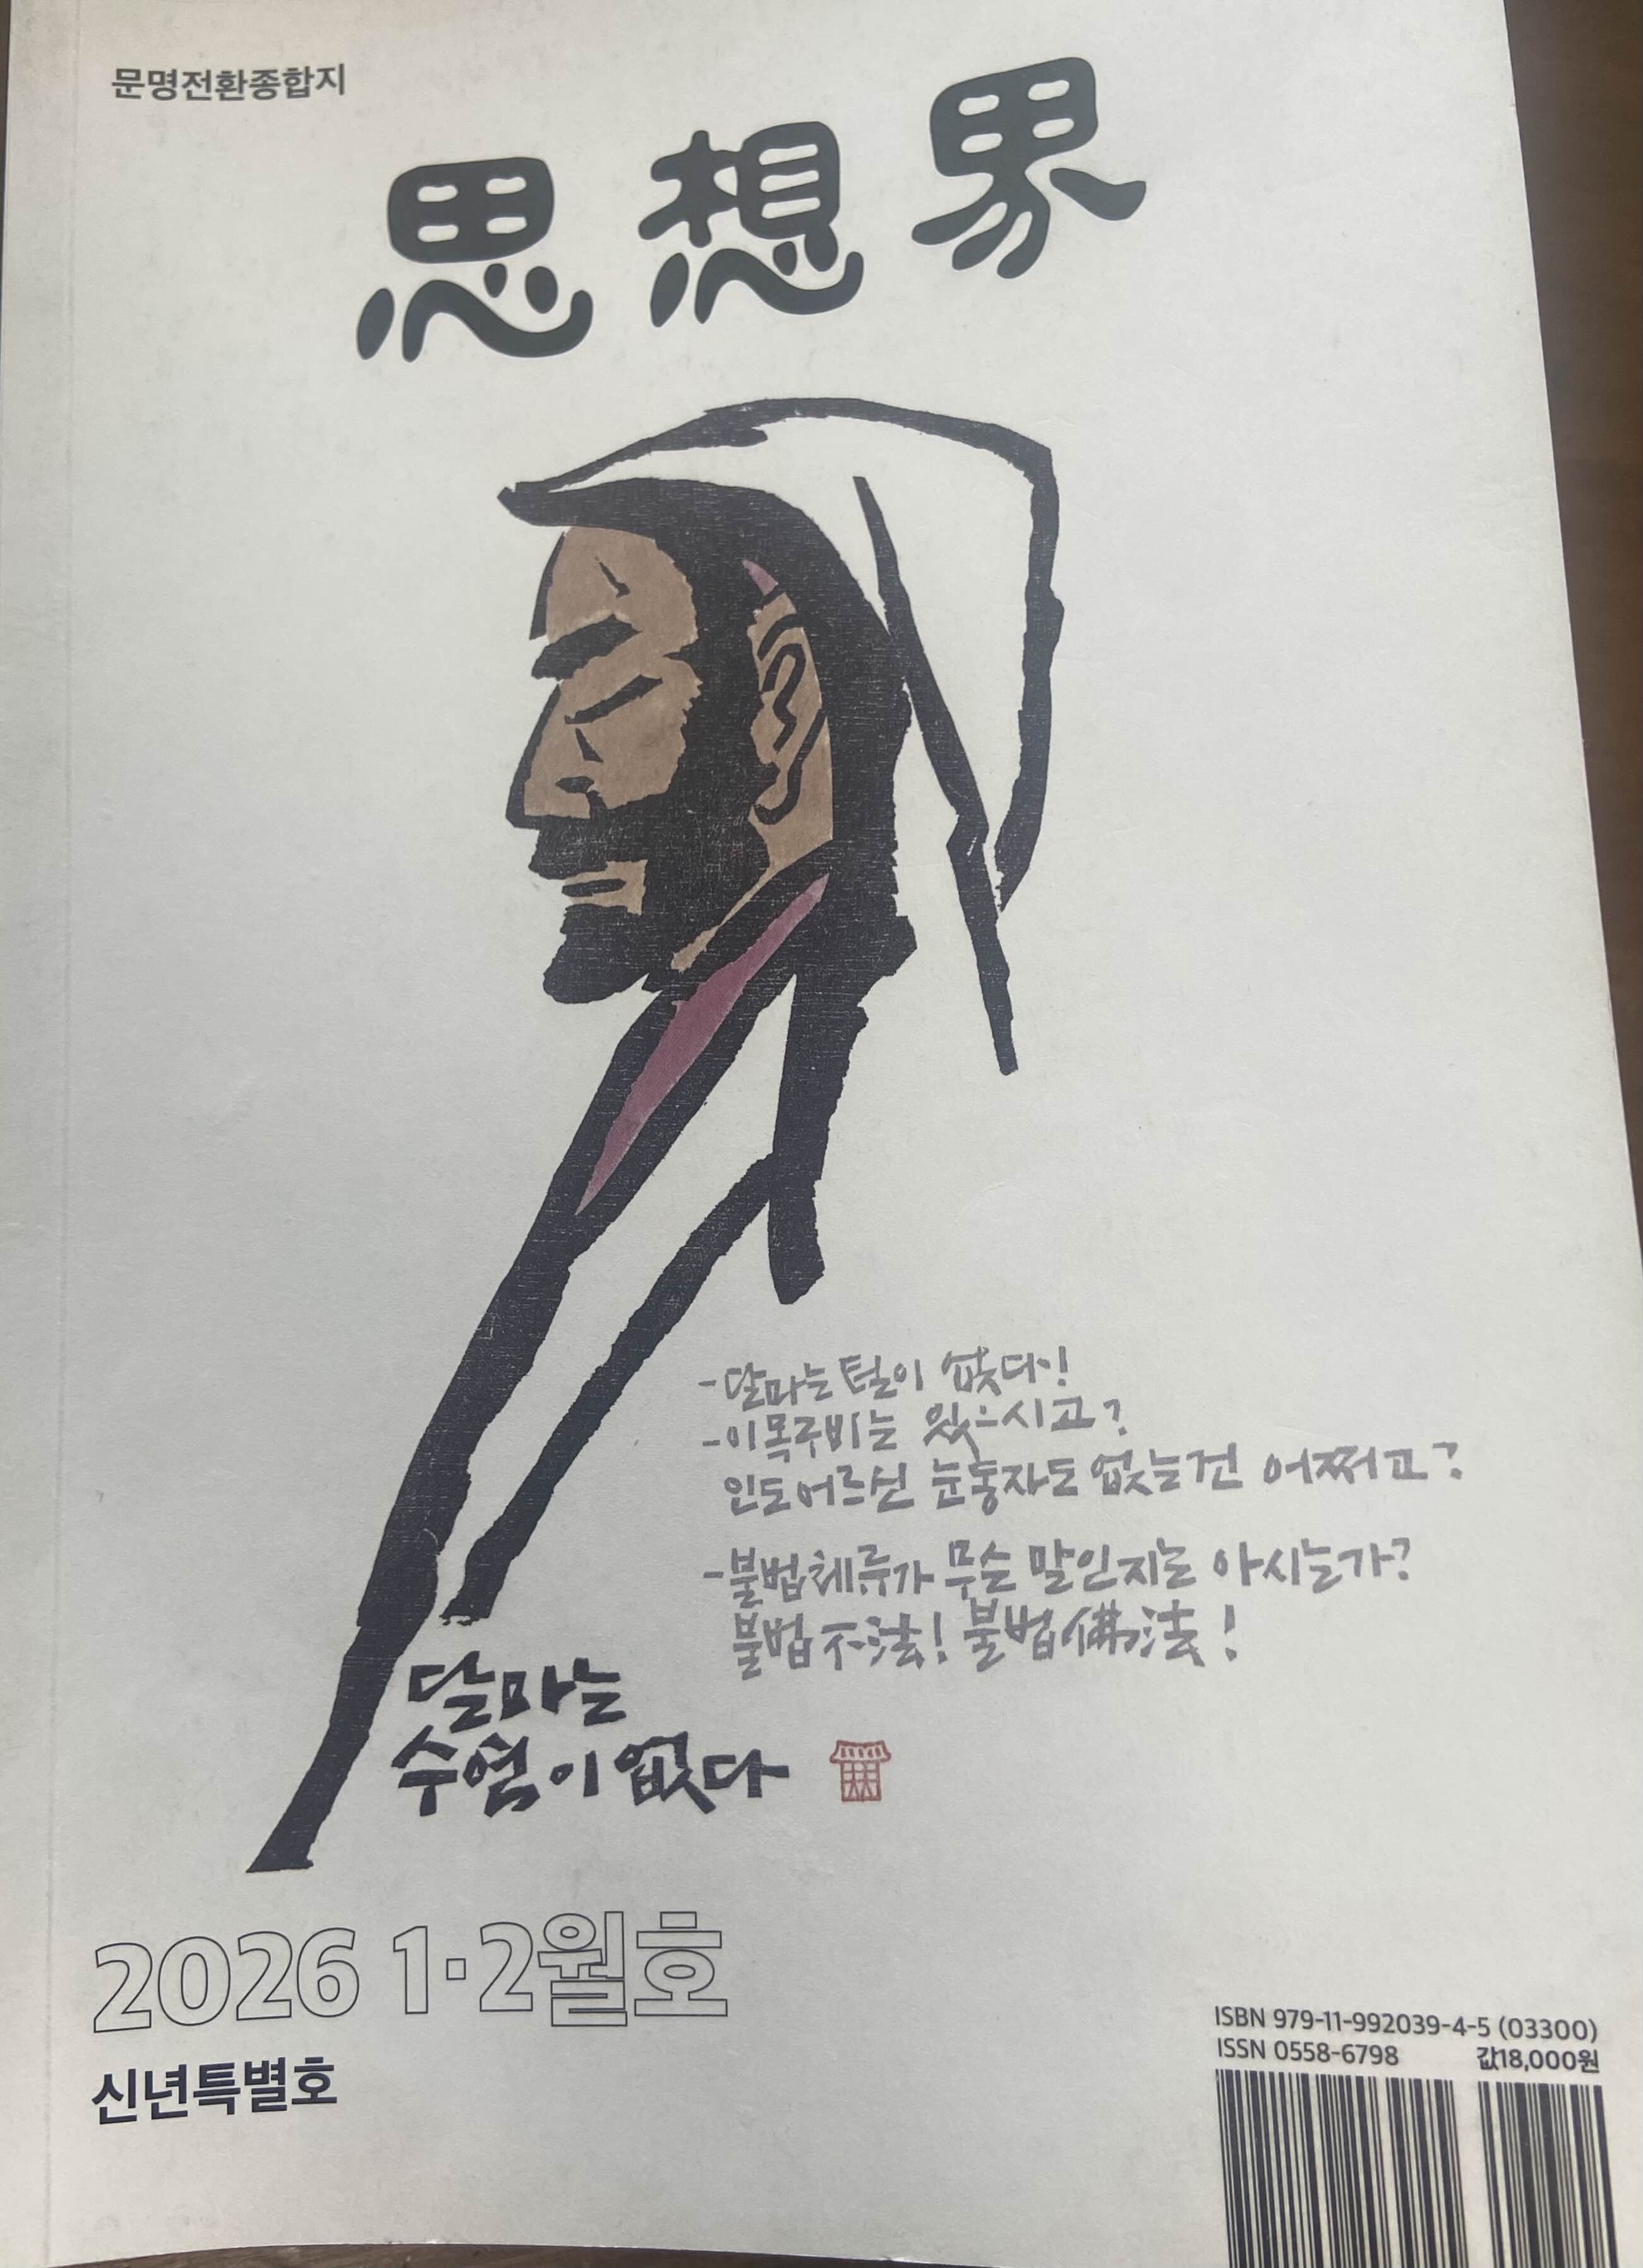 문명전환종합지
思想界
-달마는 털이 없다!
-이목구비는 있으시고?
인도어르신 눈동자도 없는건 어쩌고?
-불법체류가 무슨 말인지는 아시는가?
불법不法! 불법佛法!
달마는
수염이 없다
2026 1·2월호
신년특별호
ISBN 979-11-992039-4-5 (03300)
ISSN 0558-6798 값18,000원